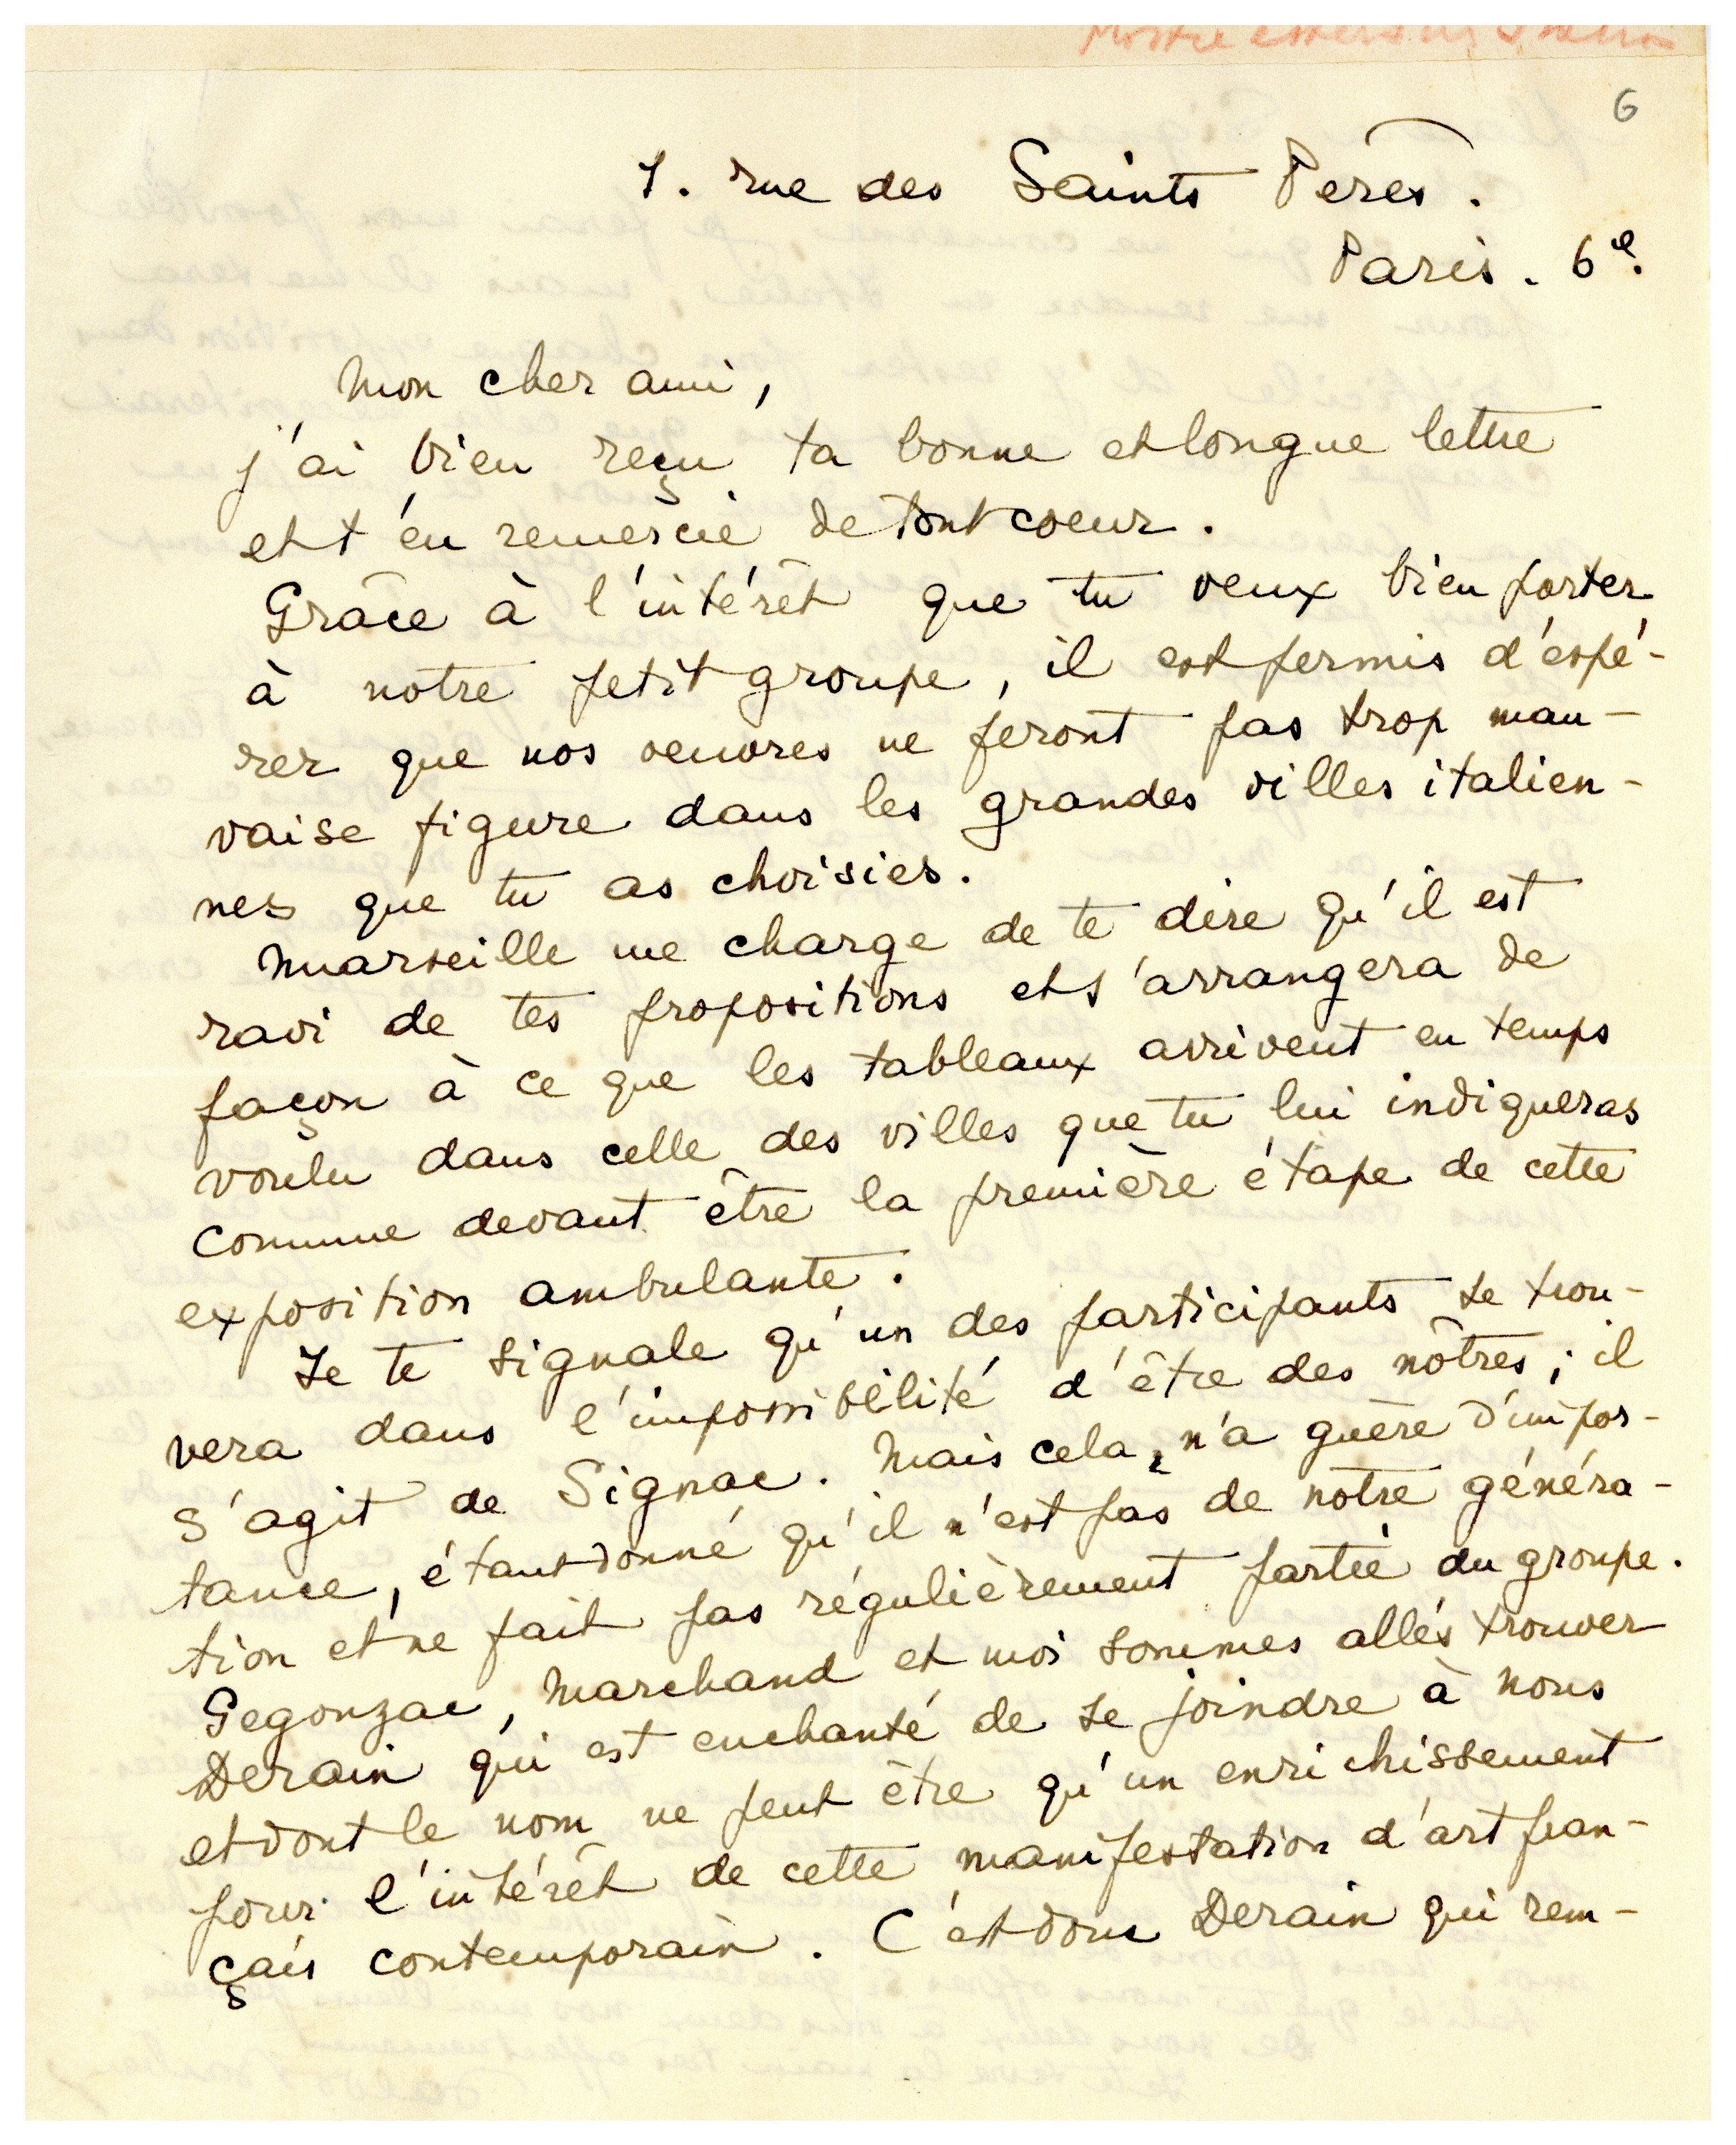 6
1. rue des Saints Pères.
Paris. 6e.
Mon cher ami,
j'ai bien reçu ta bonne et longue lettre
et t'en remercie de tout coeur.
Grâce à l'intérêt que tu veux bien porter
à notre petit groupe, il est permis d'espé-
rer que nos oeuvres ne feront pas trop mau-
vaise figure dans les grandes villes italien-
nes que tu as choisies.
Marseille me charge de te dire qu'il est
ravi de tes propositions et s'arrangera de
façon à ce que les tableaux arrivent en temps
voulu dans celle des villes que tu lui indiqueras
comme devant être la première étape de cette
exposition ambulante.
Je te signale qu'un des participants se trou-
vera dans l'impossibilité d'être des nôtres; il
s'agit de Signac. Mais cela n'a guère d'impor-
tance, étant donné qu'il n'est pas de notre généra-
tion et ne fait pas régulièrement partie du groupe.
Segonzac, Marchand et moi sommes allés trouver
Derain qui est enchanté de se joindre à nous
et dont le nom ne peut être qu'un enrichissement
pour l'intérêt de cette manifestation d'art fran-
çais contemporain. C'est donc Derain qui rem-